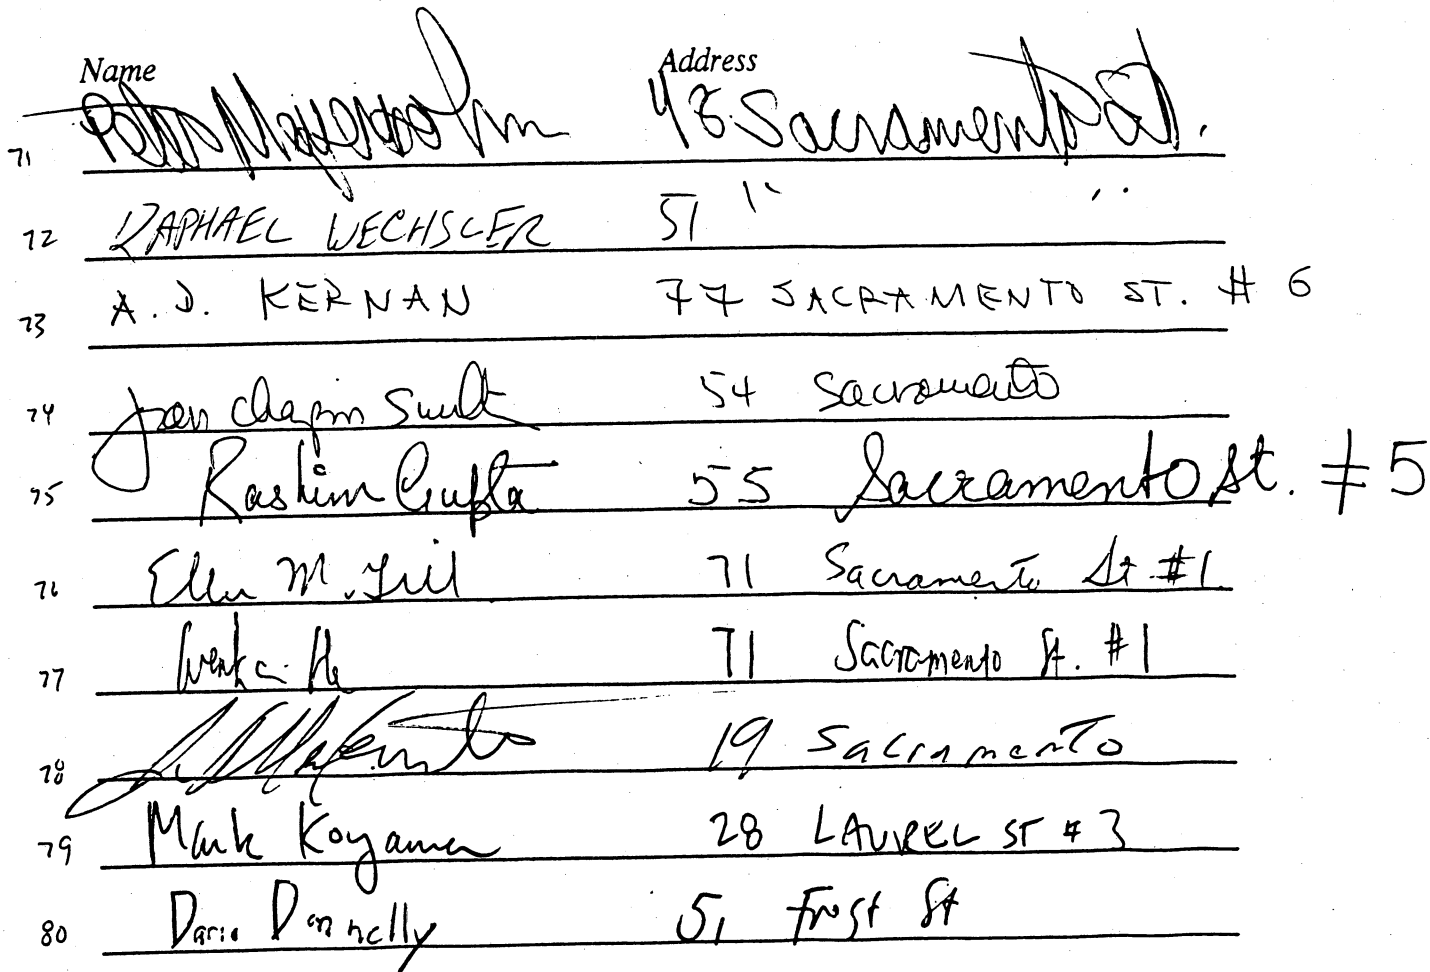 Name Address
71 48 Sacramento St.
72 RAPHAEL WECHSLER 51 " "
73 A. D. KERNAN 77 SACRAMENTO ST. # 6
74 Joan Chapin Smith 54 Sacramento
75 Rashim Gupta 55 Sacramento St. #5
76 Ellen M. 71 Sacramento St #1
77 71 Sacramento St. #1
78 19 Sacramento
79 Mark Koyama 28 LAUREL ST # 3
80 Donnelly 51 Frost St